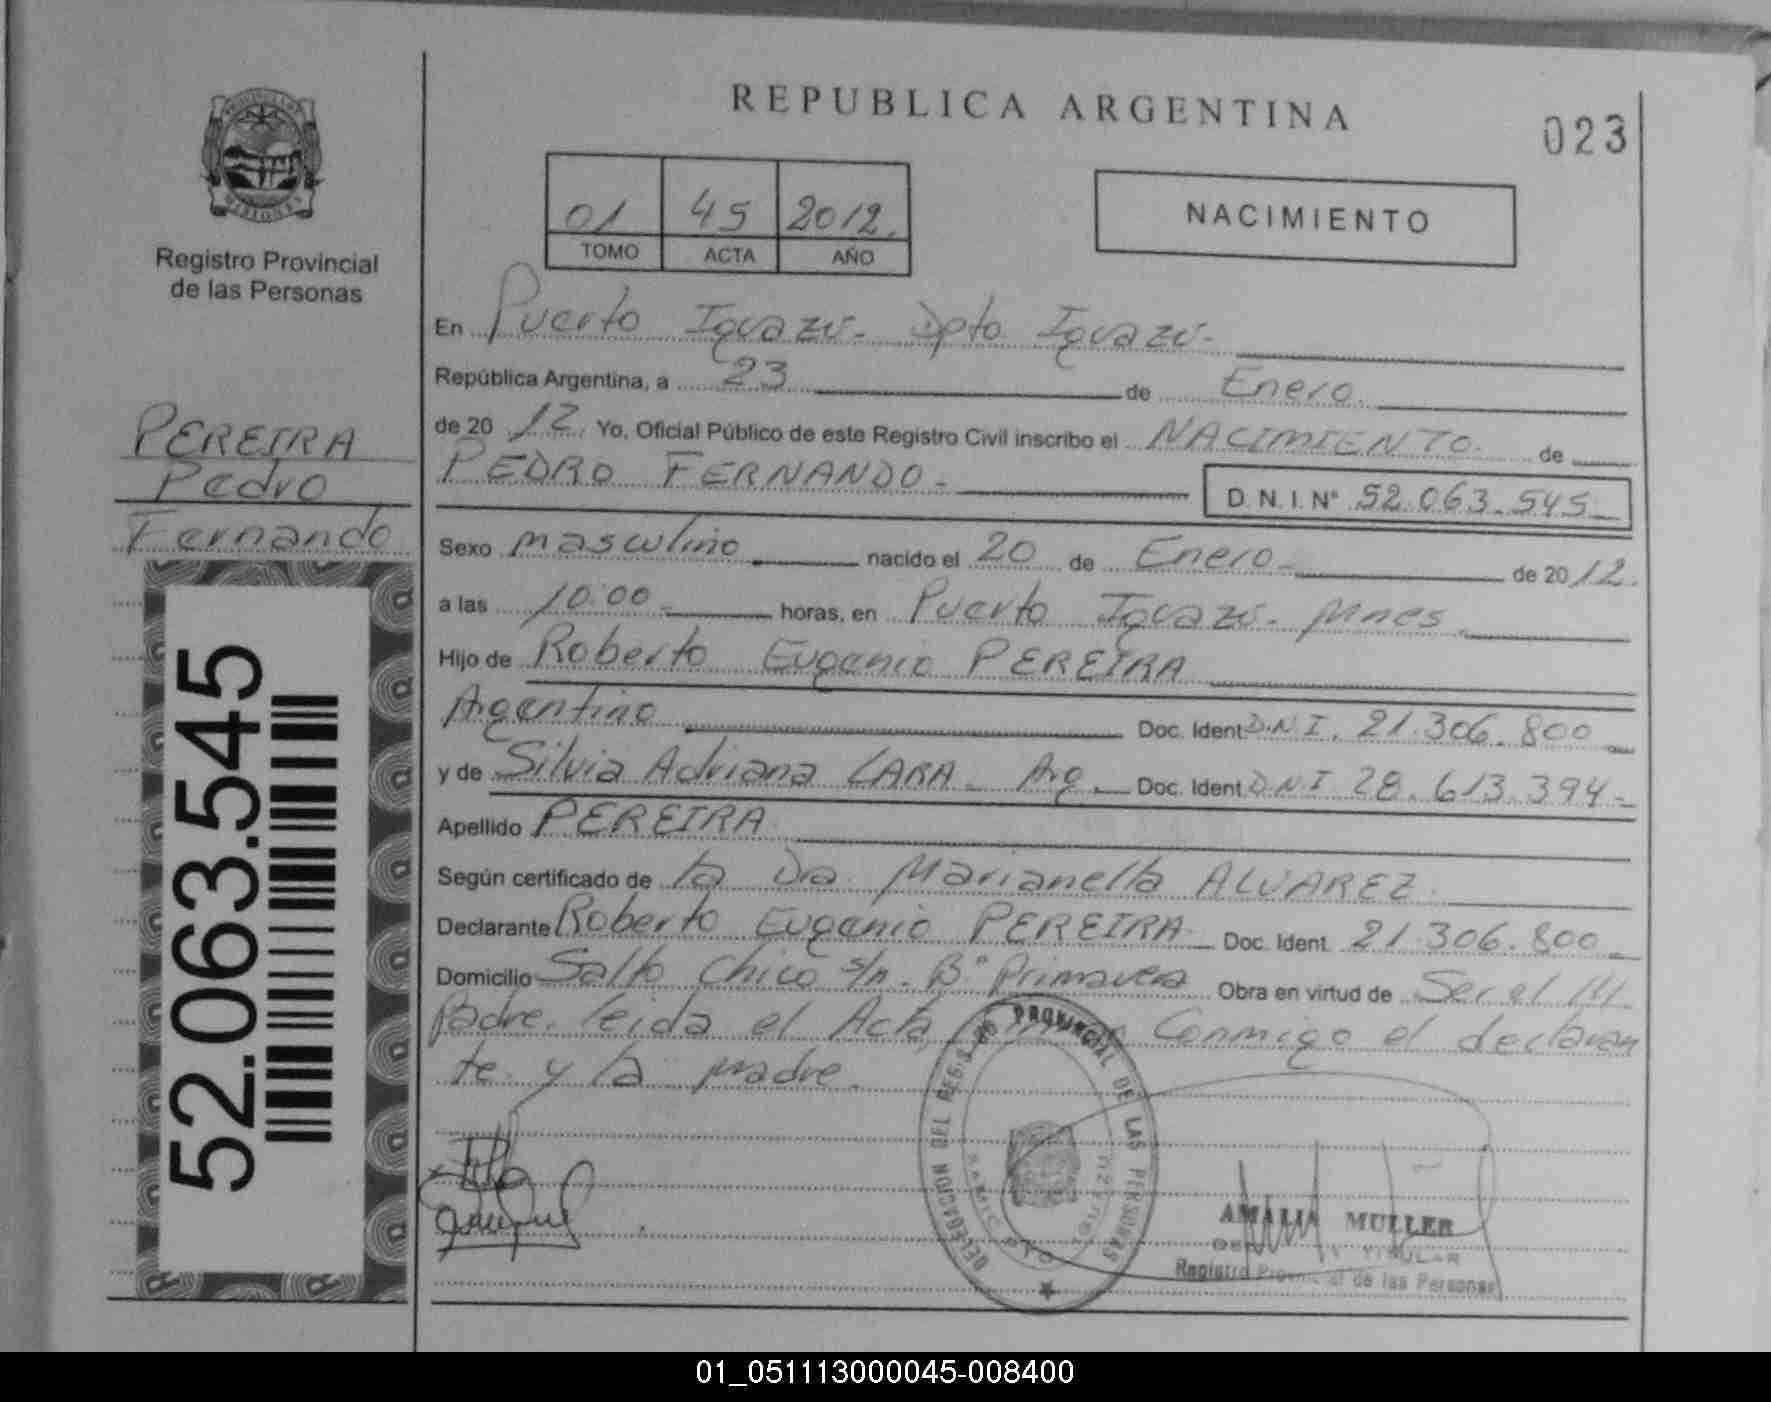 REPUBLICA ARGENTINA
023
MISIONES
Registro Provincial
de las Personas
01 45 2012.
TOMO ACTA AÑO
NACIMIENTO
En Puerto Iguazú - Dpto Iguazú -
República Argentina, a 23 de Enero
de 20 12. Yo, Oficial Público de este Registro Civil inscribo el NACIMIENTO de
PEDRO FERNANDO - D.N.I.Nº 52.063.545
PEREIRA
Pedro
Fernando
Sexo masculino nacido el 20 de Enero - de 20 12.
a las 10:00 horas, en Puerto Iguazú - Mnes
Hijo de Roberto Eugenio PEREIRA
Argentino Doc. Ident D.N.I. 21.306.800
y de Silvia Adriana LARA - Arg. Doc. Ident D.N.I 28.613.394 -
Apellido PEREIRA
Según certificado de la Dra. Marianella ALVAREZ.
Declarante Roberto Eugenio PEREIRA Doc. Ident. 21.306.800
Domicilio Salto Chico s/n. Bº Primavera Obra en virtud de Ser el
Padre. leida el Acta, Conmigo el declaran
te y la madre.
52.063.545
DELEGACION DEL REGISTRO PROVINCIAL DE LAS PERSONAS
AMALIA MULLER
TITULAR
Registro Provincial de las Personas
01_051113000045-008400